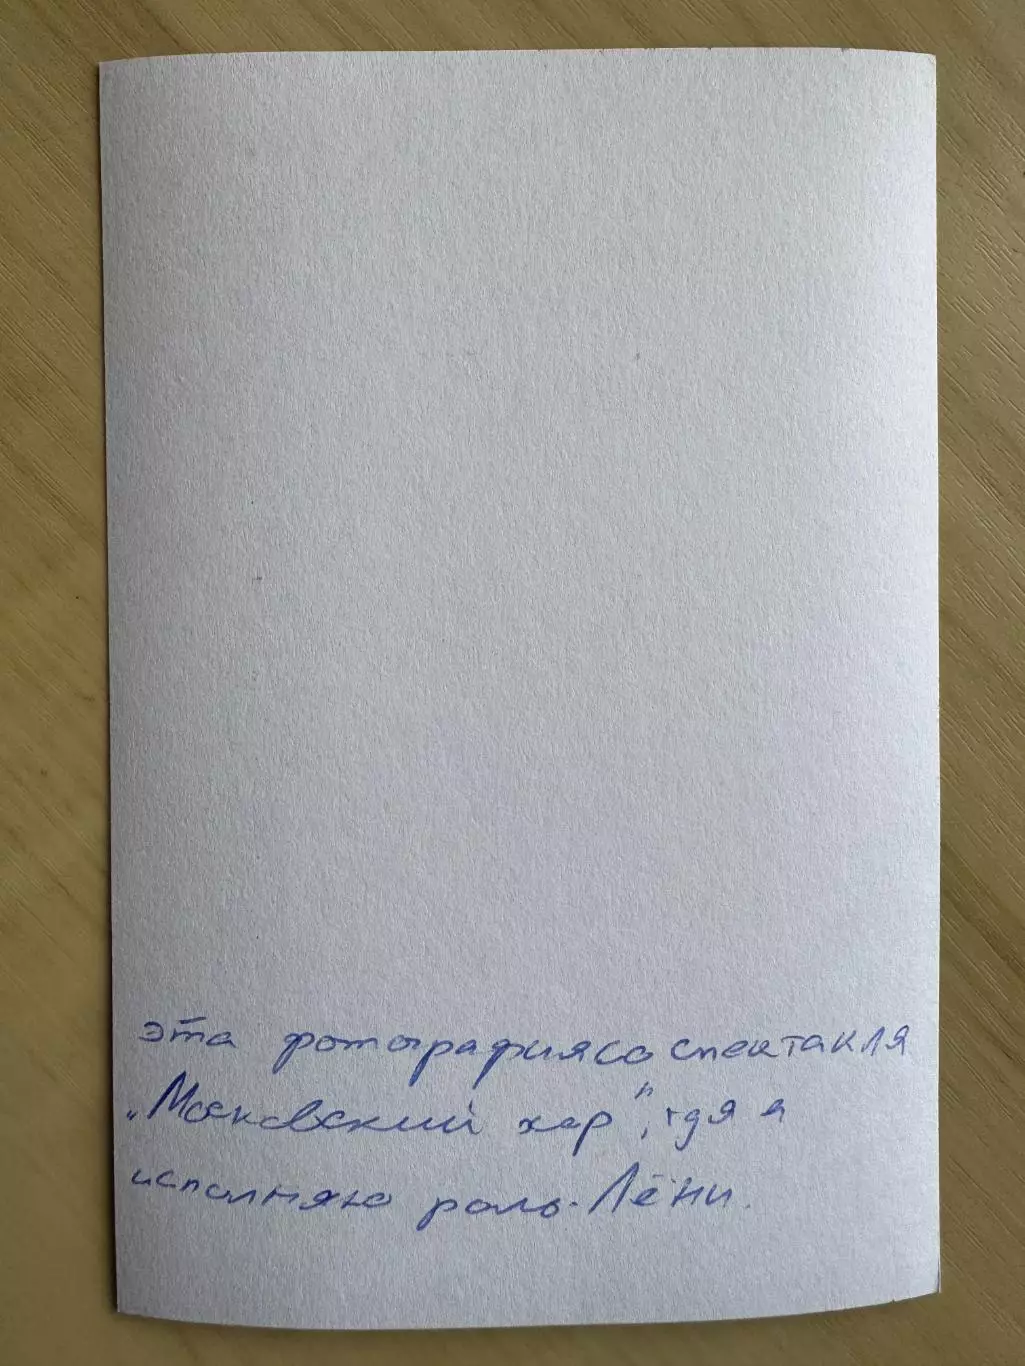 эта фотография со спектакля
"Московский хор", где я
исполняю роль Лёни.